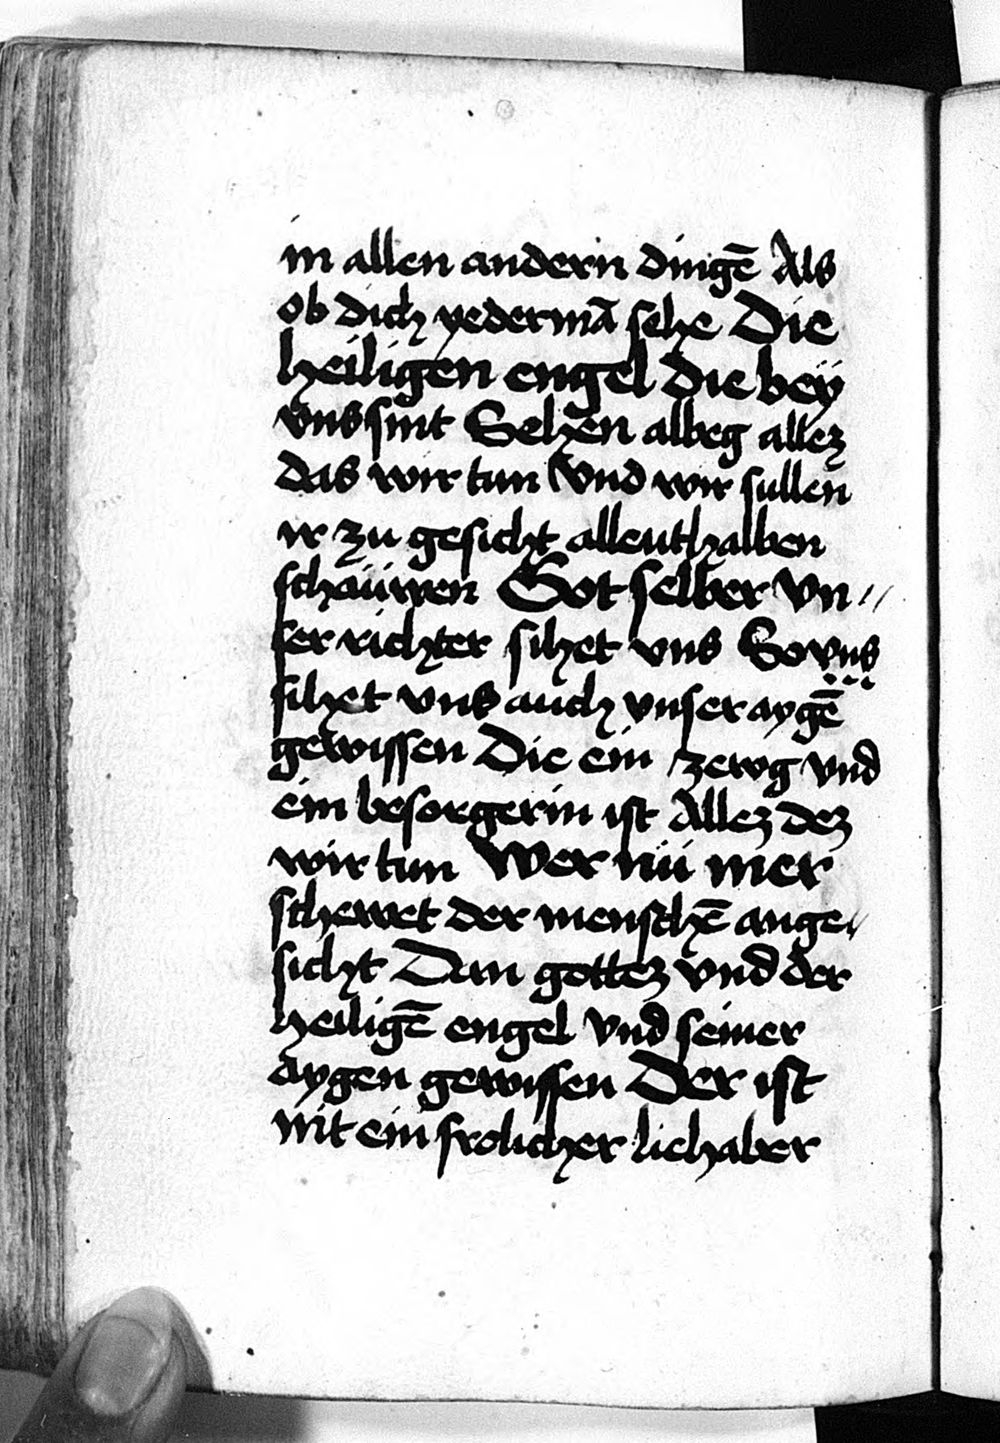 in allen andern dingē Als
ob dich yedermā sehe Die
heiligen engel die bey
vns sint Sehen albeg allez
das wir tun Vnd wir sullen
ir zu gesicht allenthalben
schäuwen Got selber vn〃
ser richter sihet vns So vns
sihet vns auch vnser aygē
gewissen Die ein zewg vnd
ein besorgerin ist Allez dez
wir tun Wer nü mer
schewet der menschē ange〃
sicht Dan gottez vnd der
heiligē engel Vnd seiner
aygen gewissen Der ist
nit ein frolicher lichaber